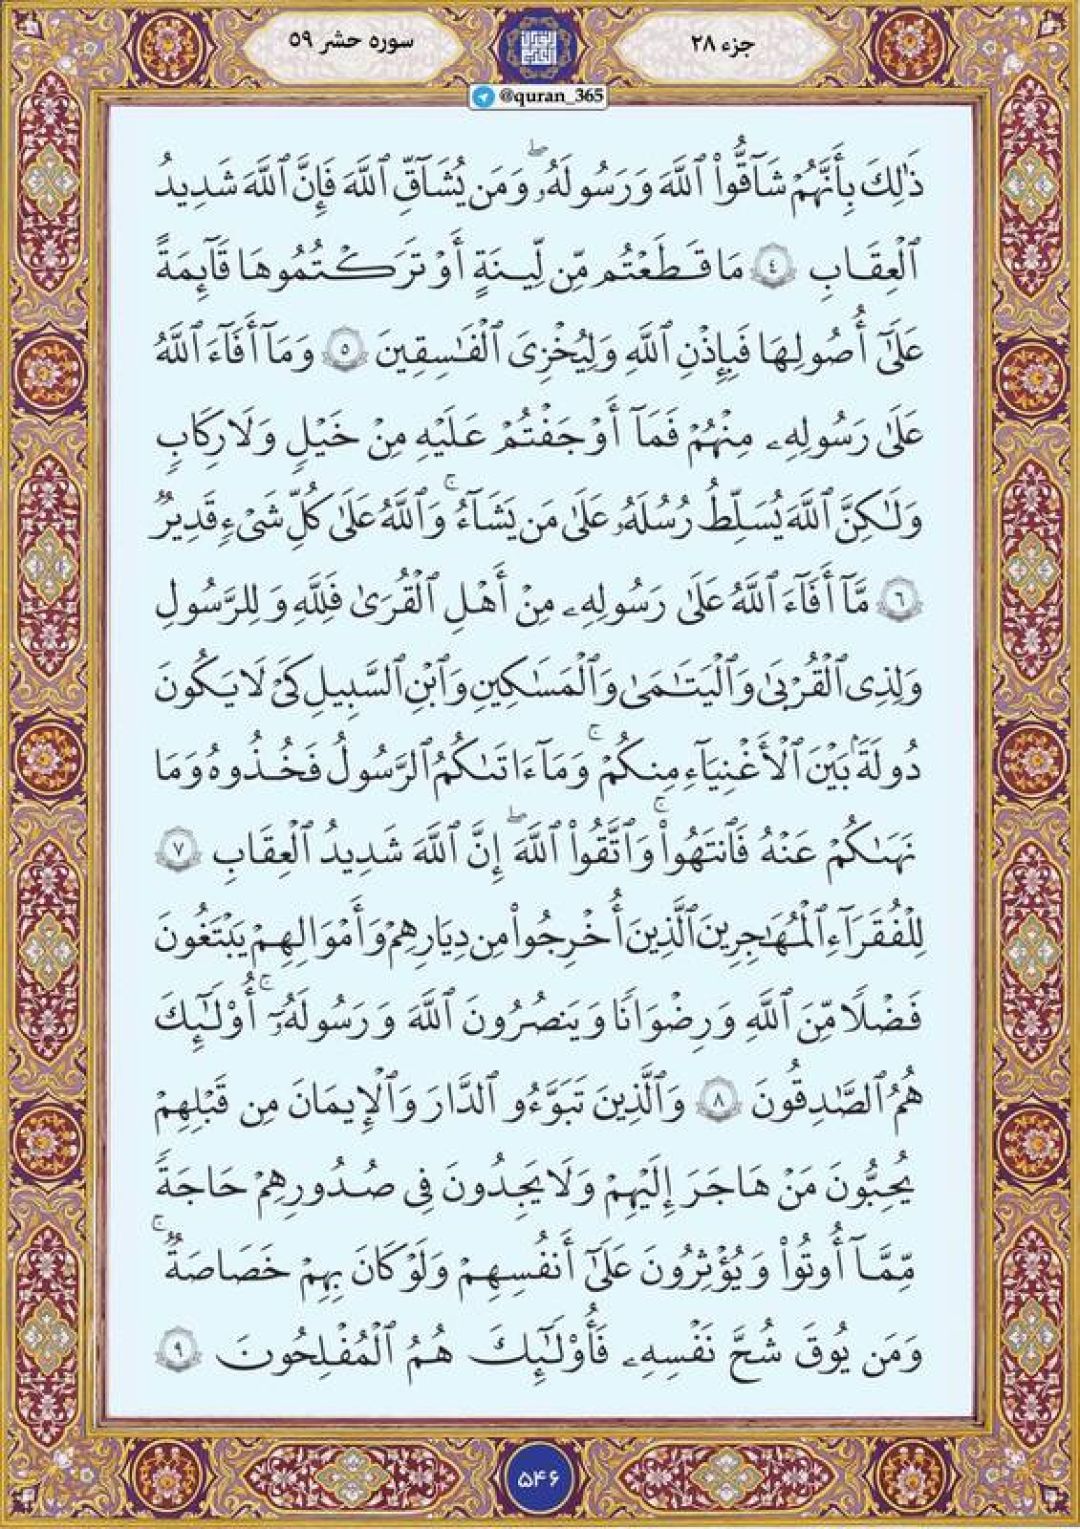 جزء ۲۸
سوره حشر ۵۹
@quran_365
ذَٰلِكَ بِأَنَّهُمْ شَآقُّوا۟ ٱللَّهَ وَرَسُولَهُۥ ۖ وَمَن يُشَآقِّ ٱللَّهَ فَإِنَّ ٱللَّهَ شَدِيدُ
ٱلْعِقَابِ ٤ مَا قَطَعْتُم مِّن لِّينَةٍ أَوْ تَرَكْتُمُوهَا قَآئِمَةً
عَلَىٰٓ أُصُولِهَا فَبِإِذْنِ ٱللَّهِ وَلِيُخْزِىَ ٱلْفَـٰسِقِينَ ٥ وَمَآ أَفَآءَ ٱللَّهُ
عَلَىٰ رَسُولِهِۦ مِنْهُمْ فَمَآ أَوْجَفْتُمْ عَلَيْهِ مِنْ خَيْلٍ وَلَا رِكَابٍ
وَلَـٰكِنَّ ٱللَّهَ يُسَلِّطُ رُسُلَهُۥ عَلَىٰ مَن يَشَآءُ ۚ وَٱللَّهُ عَلَىٰ كُلِّ شَىْءٍ قَدِيرٌ
٦ مَّآ أَفَآءَ ٱللَّهُ عَلَىٰ رَسُولِهِۦ مِنْ أَهْلِ ٱلْقُرَىٰ فَلِلَّهِ وَلِلرَّسُولِ
وَلِذِى ٱلْقُرْبَىٰ وَٱلْيَتَـٰمَىٰ وَٱلْمَسَـٰكِينِ وَٱبْنِ ٱلسَّبِيلِ كَىْ لَا يَكُونَ
دُولَةًۢ بَيْنَ ٱلْأَغْنِيَآءِ مِنكُمْ ۚ وَمَآ ءَاتَىٰكُمُ ٱلرَّسُولُ فَخُذُوهُ وَمَا
نَهَىٰكُمْ عَنْهُ فَٱنتَهُوا۟ ۚ وَٱتَّقُوا۟ ٱللَّهَ ۖ إِنَّ ٱللَّهَ شَدِيدُ ٱلْعِقَابِ ٧
لِلْفُقَرَآءِ ٱلْمُهَـٰجِرِينَ ٱلَّذِينَ أُخْرِجُوا۟ مِن دِيَارِهِمْ وَأَمْوَالِهِمْ يَبْتَغُونَ
فَضْلًا مِّنَ ٱللَّهِ وَرِضْوَانًا وَيَنصُرُونَ ٱللَّهَ وَرَسُولَهُۥٓ ۚ أُو۟لَـٰٓئِكَ
هُمُ ٱلصَّـٰدِقُونَ ٨ وَٱلَّذِينَ تَبَوَّءُو ٱلدَّارَ وَٱلْإِيمَانَ مِن قَبْلِهِمْ
يُحِبُّونَ مَنْ هَاجَرَ إِلَيْهِمْ وَلَا يَجِدُونَ فِى صُدُورِهِمْ حَاجَةً
مِّمَّآ أُوتُوا۟ وَيُؤْثِرُونَ عَلَىٰٓ أَنفُسِهِمْ وَلَوْ كَانَ بِهِمْ خَصَاصَةٌ ۚ
وَمَن يُوقَ شُحَّ نَفْسِهِۦ فَأُو۟لَـٰٓئِكَ هُمُ ٱلْمُفْلِحُونَ ٩
۵۴۶